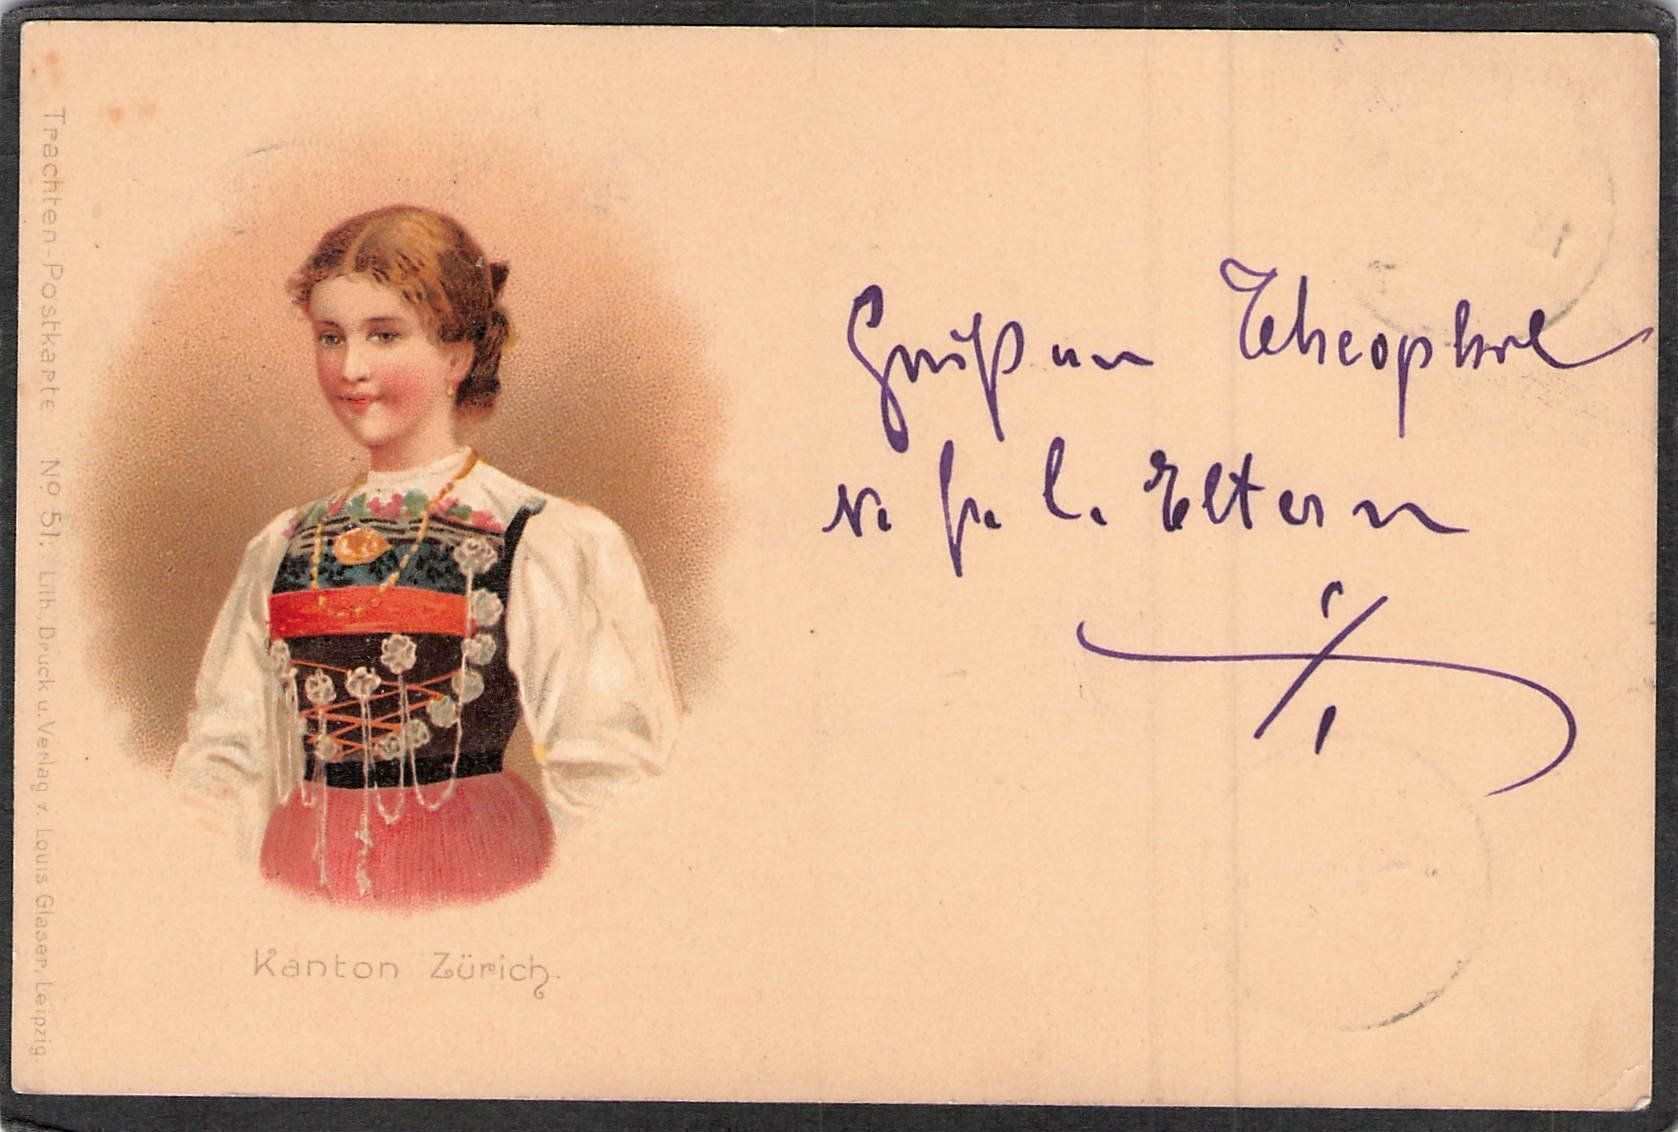 Trachten-Postkarte No 51. Lith. Druck u. Verlag v. Louis Glaser, Leipzig.
Gruß an Theophil
u. s. l. Eltern
Kanton Zürich.